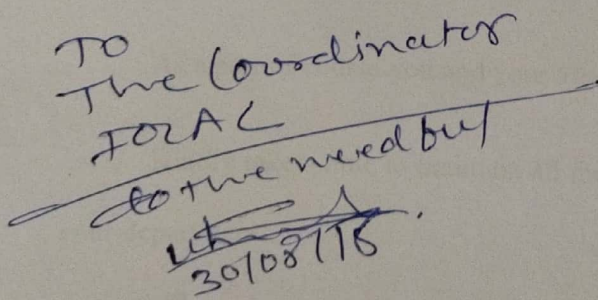 TO
The Coordinator
IQAC
do the needful
30/08/16